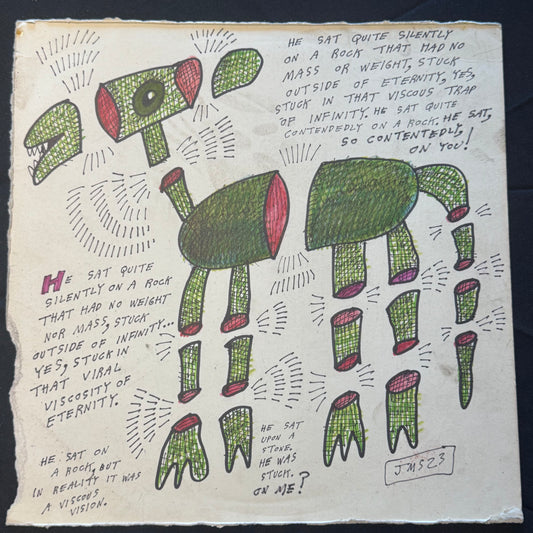 HE SAT QUITE SILENTLY
ON A ROCK THAT HAD NO
MASS OR WEIGHT, STUCK
OUTSIDE OF ETERNITY, YES,
STUCK IN THAT VISCOUS TRAP
OF INFINITY. HE SAT QUITE
CONTENDEDLY ON A ROCK. HE SAT,
SO CONTENTEDLY,
ON YOU!
HE SAT QUITE
SILENTLY ON A ROCK
THAT HAD NO WEIGHT
NOR MASS, STUCK
OUTSIDE OF INFINITY...
YES, STUCK IN
THAT VIRAL
VISCOSITY OF
ETERNITY.
HE SAT ON
A ROCK, BUT
IN REALITY IT WAS
A VISCOUS
VISION.
HE SAT
UPON A
STONE.
HE WAS
STUCK.
ON ME?
JMS23